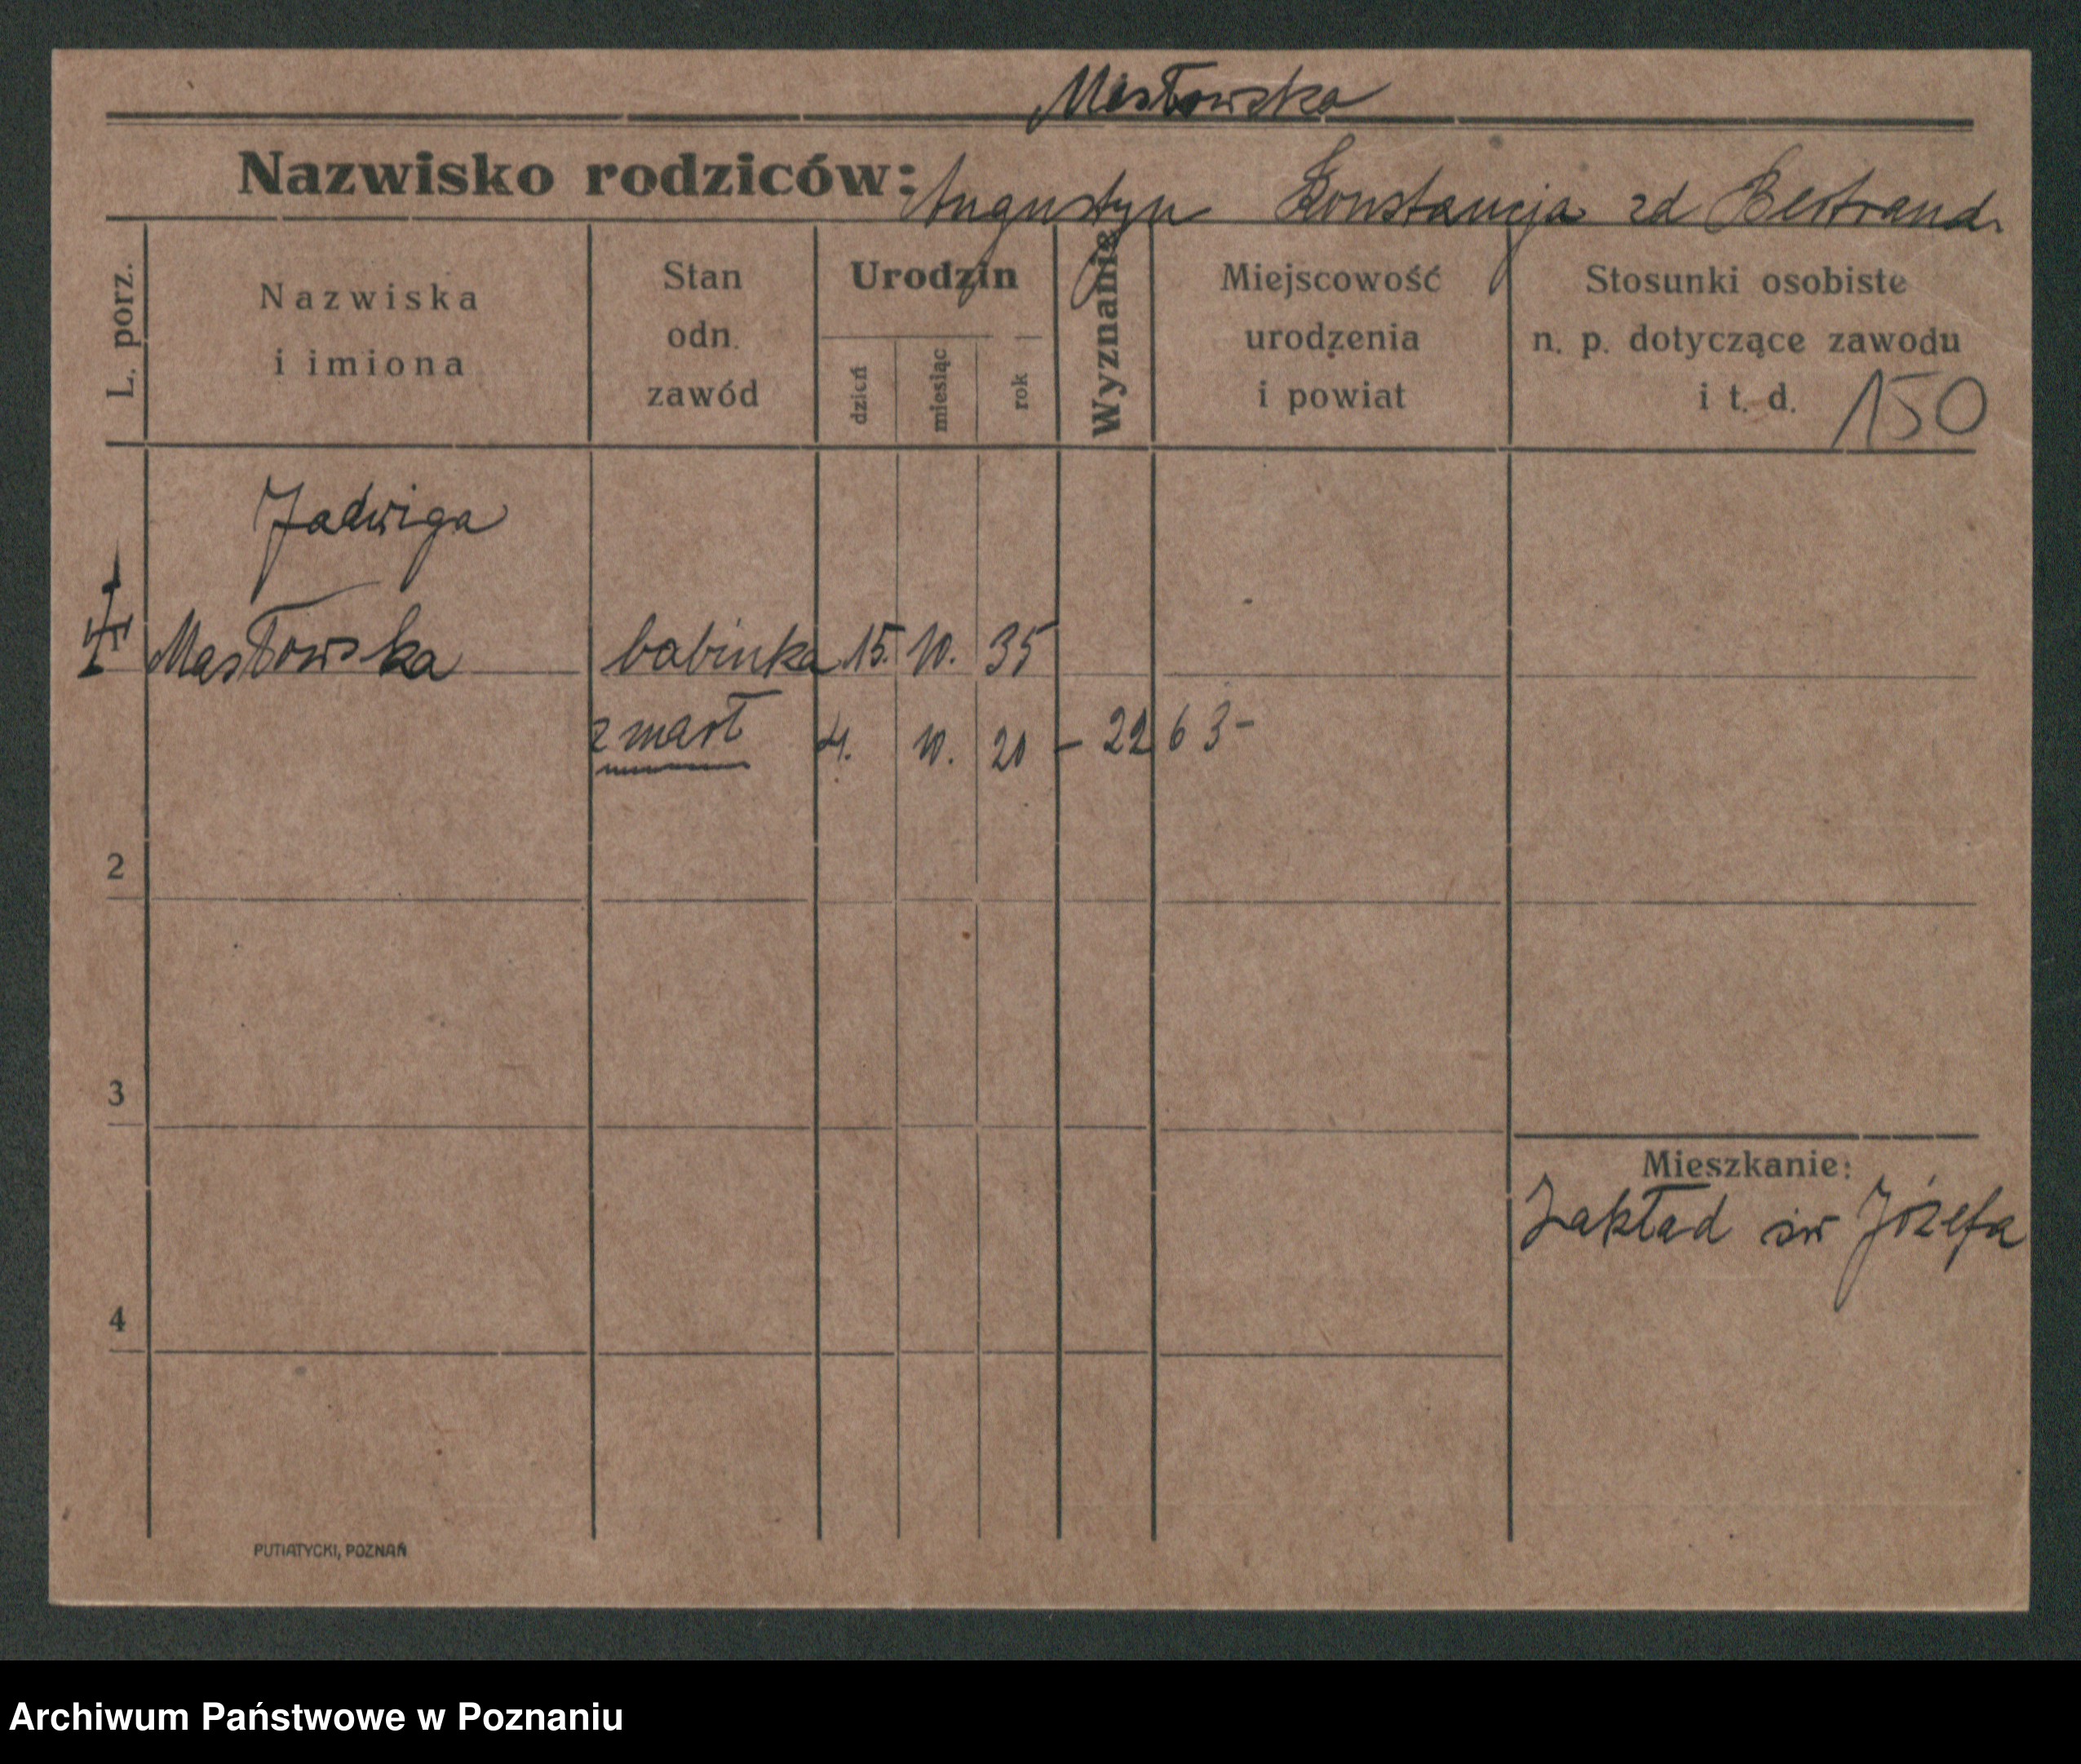 Masłowska
Nazwisko rodziców: Augustyn Konstancja zd Bertrand.
L. porz.
Nazwiska
i imiona
Stan
odn.
zawód
Urodzin
dzień
miesiąc
rok
Wyznanie
Miejscowość
urodzenia
i powiat
Stosunki osobiste
n. p. dotyczące zawodu
i t. d. 150
Jadwiga
Masłowska 15. 10. 35
zmarł 4. 10. 20 – 2263 –
2
3
Mieszkanie:
Zakład św Józefa
4
PUTIATYCKI, POZNAŃ
Archiwum Państwowe w Poznaniu